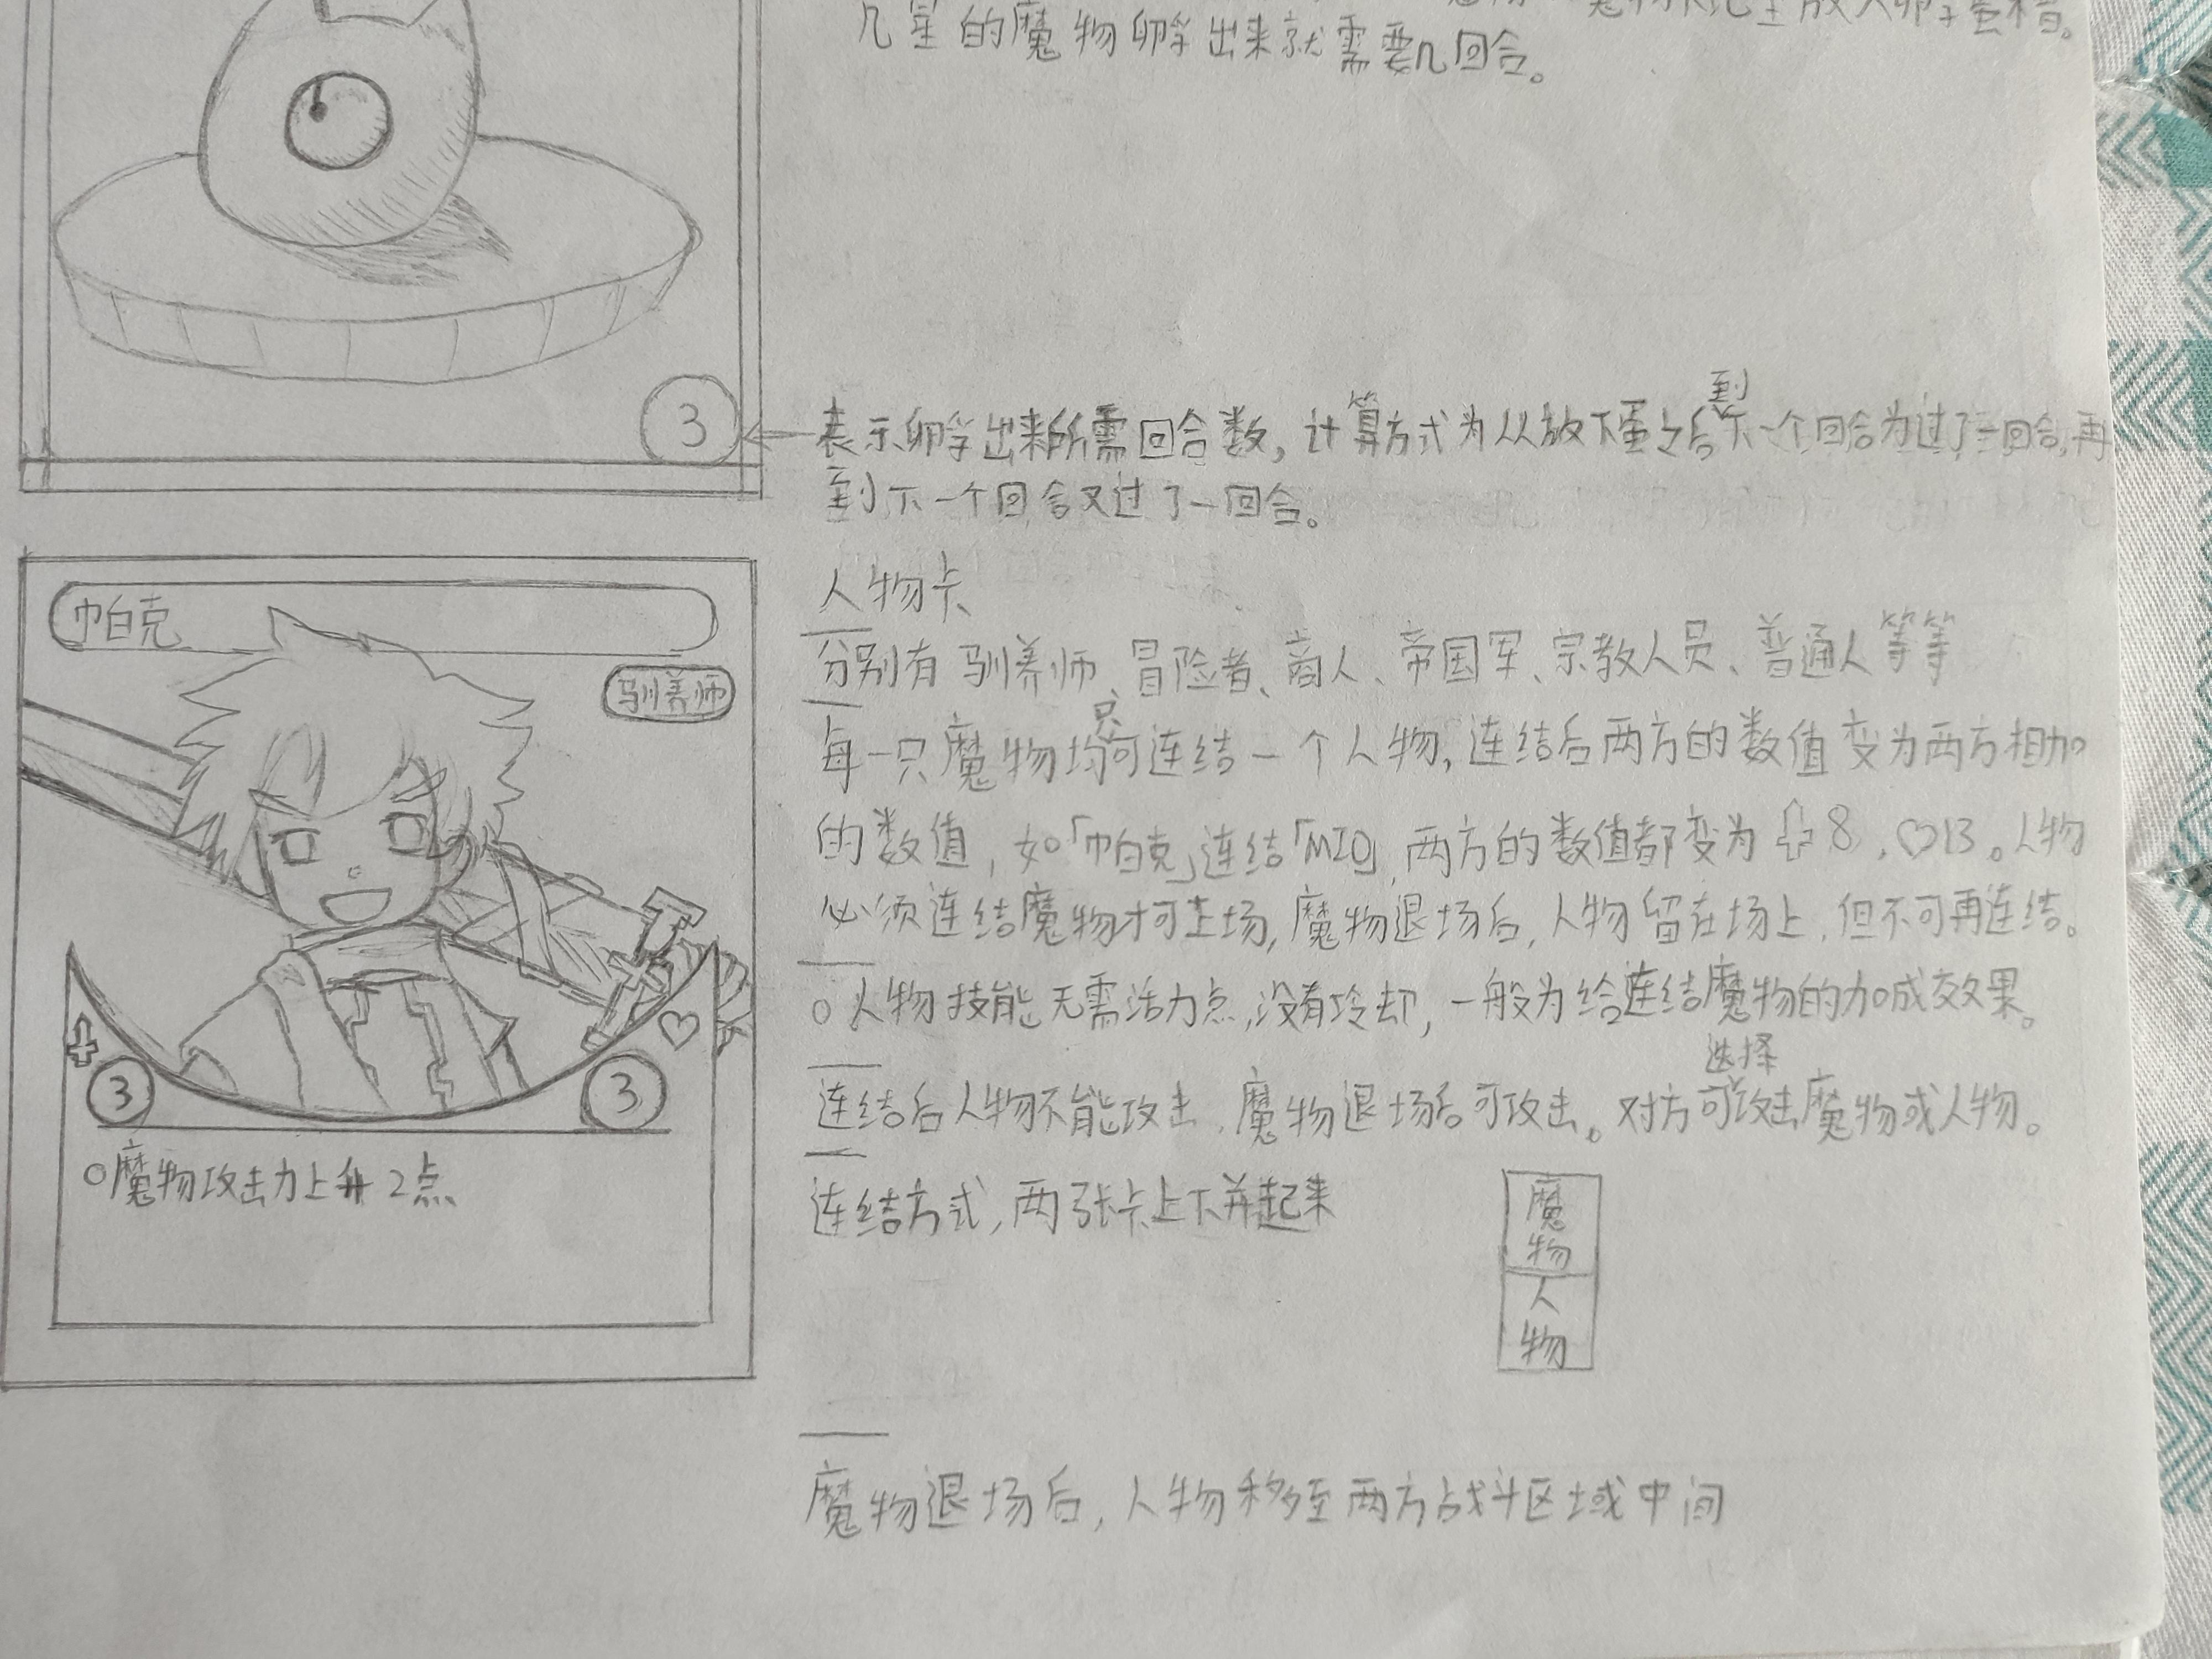 几星的魔物孵出来就需要几回合。
3
表示孵出来所需回合数,计算方式为从放下蛋之后到下一个回合为过了一回合,再
到下一个回合又过了一回合。
人物卡
帕克
驯养师
分别有驯养师、冒险者、商人、帝国军、宗教人员、普通人等等
每一只魔物均只可连结一个人物,连结后两方的数值变为两方相加
的数值,如「帕克」连结「MIO」,两方的数值都变为⇧8,♡13。人物
必须连结魔物才可上场,魔物退场后,人物留在场上,但不可再连结。
○人物技能无需活力点,没有冷却,一般为给连结魔物的加成效果。
3
♡
3
连结后人物不能攻击,魔物退场后可攻击。对方可选择攻击魔物或人物。
○魔物攻击力上升2点
连结方式,两张卡上下并起来
魔物
人物
魔物退场后,人物移至两方战斗区域中间